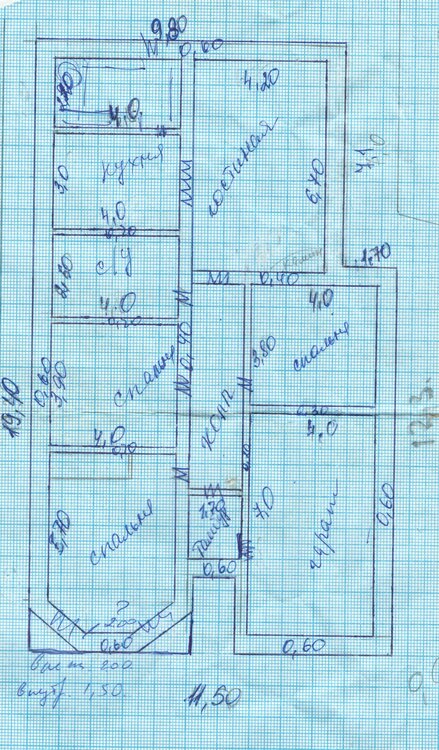 9,80
0,60
4,20
4,0
7,10
кухня
3,0
гостиная
6,70
4,0
0,20
1,70
0,40
С/У
4,0
4,0
0,20
3,80
спальня
спальня
0,40
0,60
3,90
19,40
корр
4,0
12,3
4,0
7,0
гараж
0,60
1,70
Тамбур
3,70
спальня
0,60
200
0,60
0,60
внеш. 200
внутр. 1,50
11,50